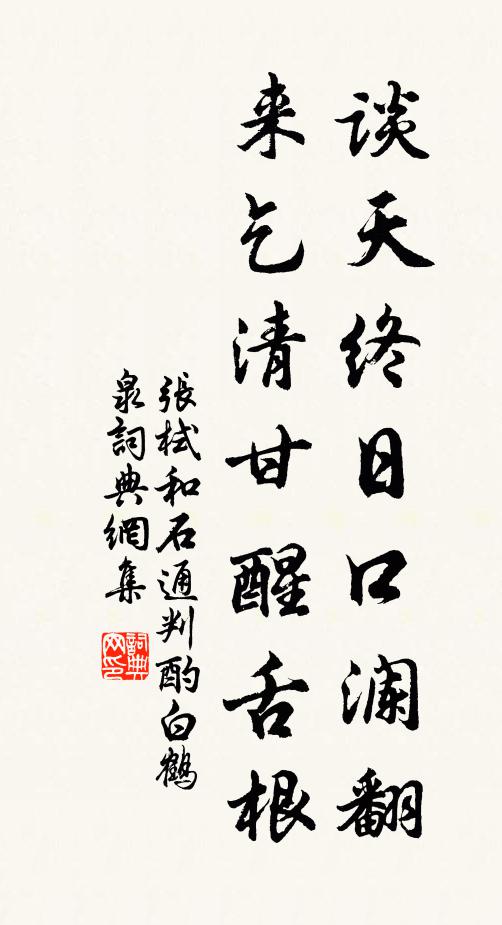 谈天终日口澜翻
来乞清甘醒舌根
張栻和石通判酌白鶴
泉詞典網集
詞典
网印